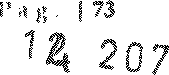 Pag. 173
124 207